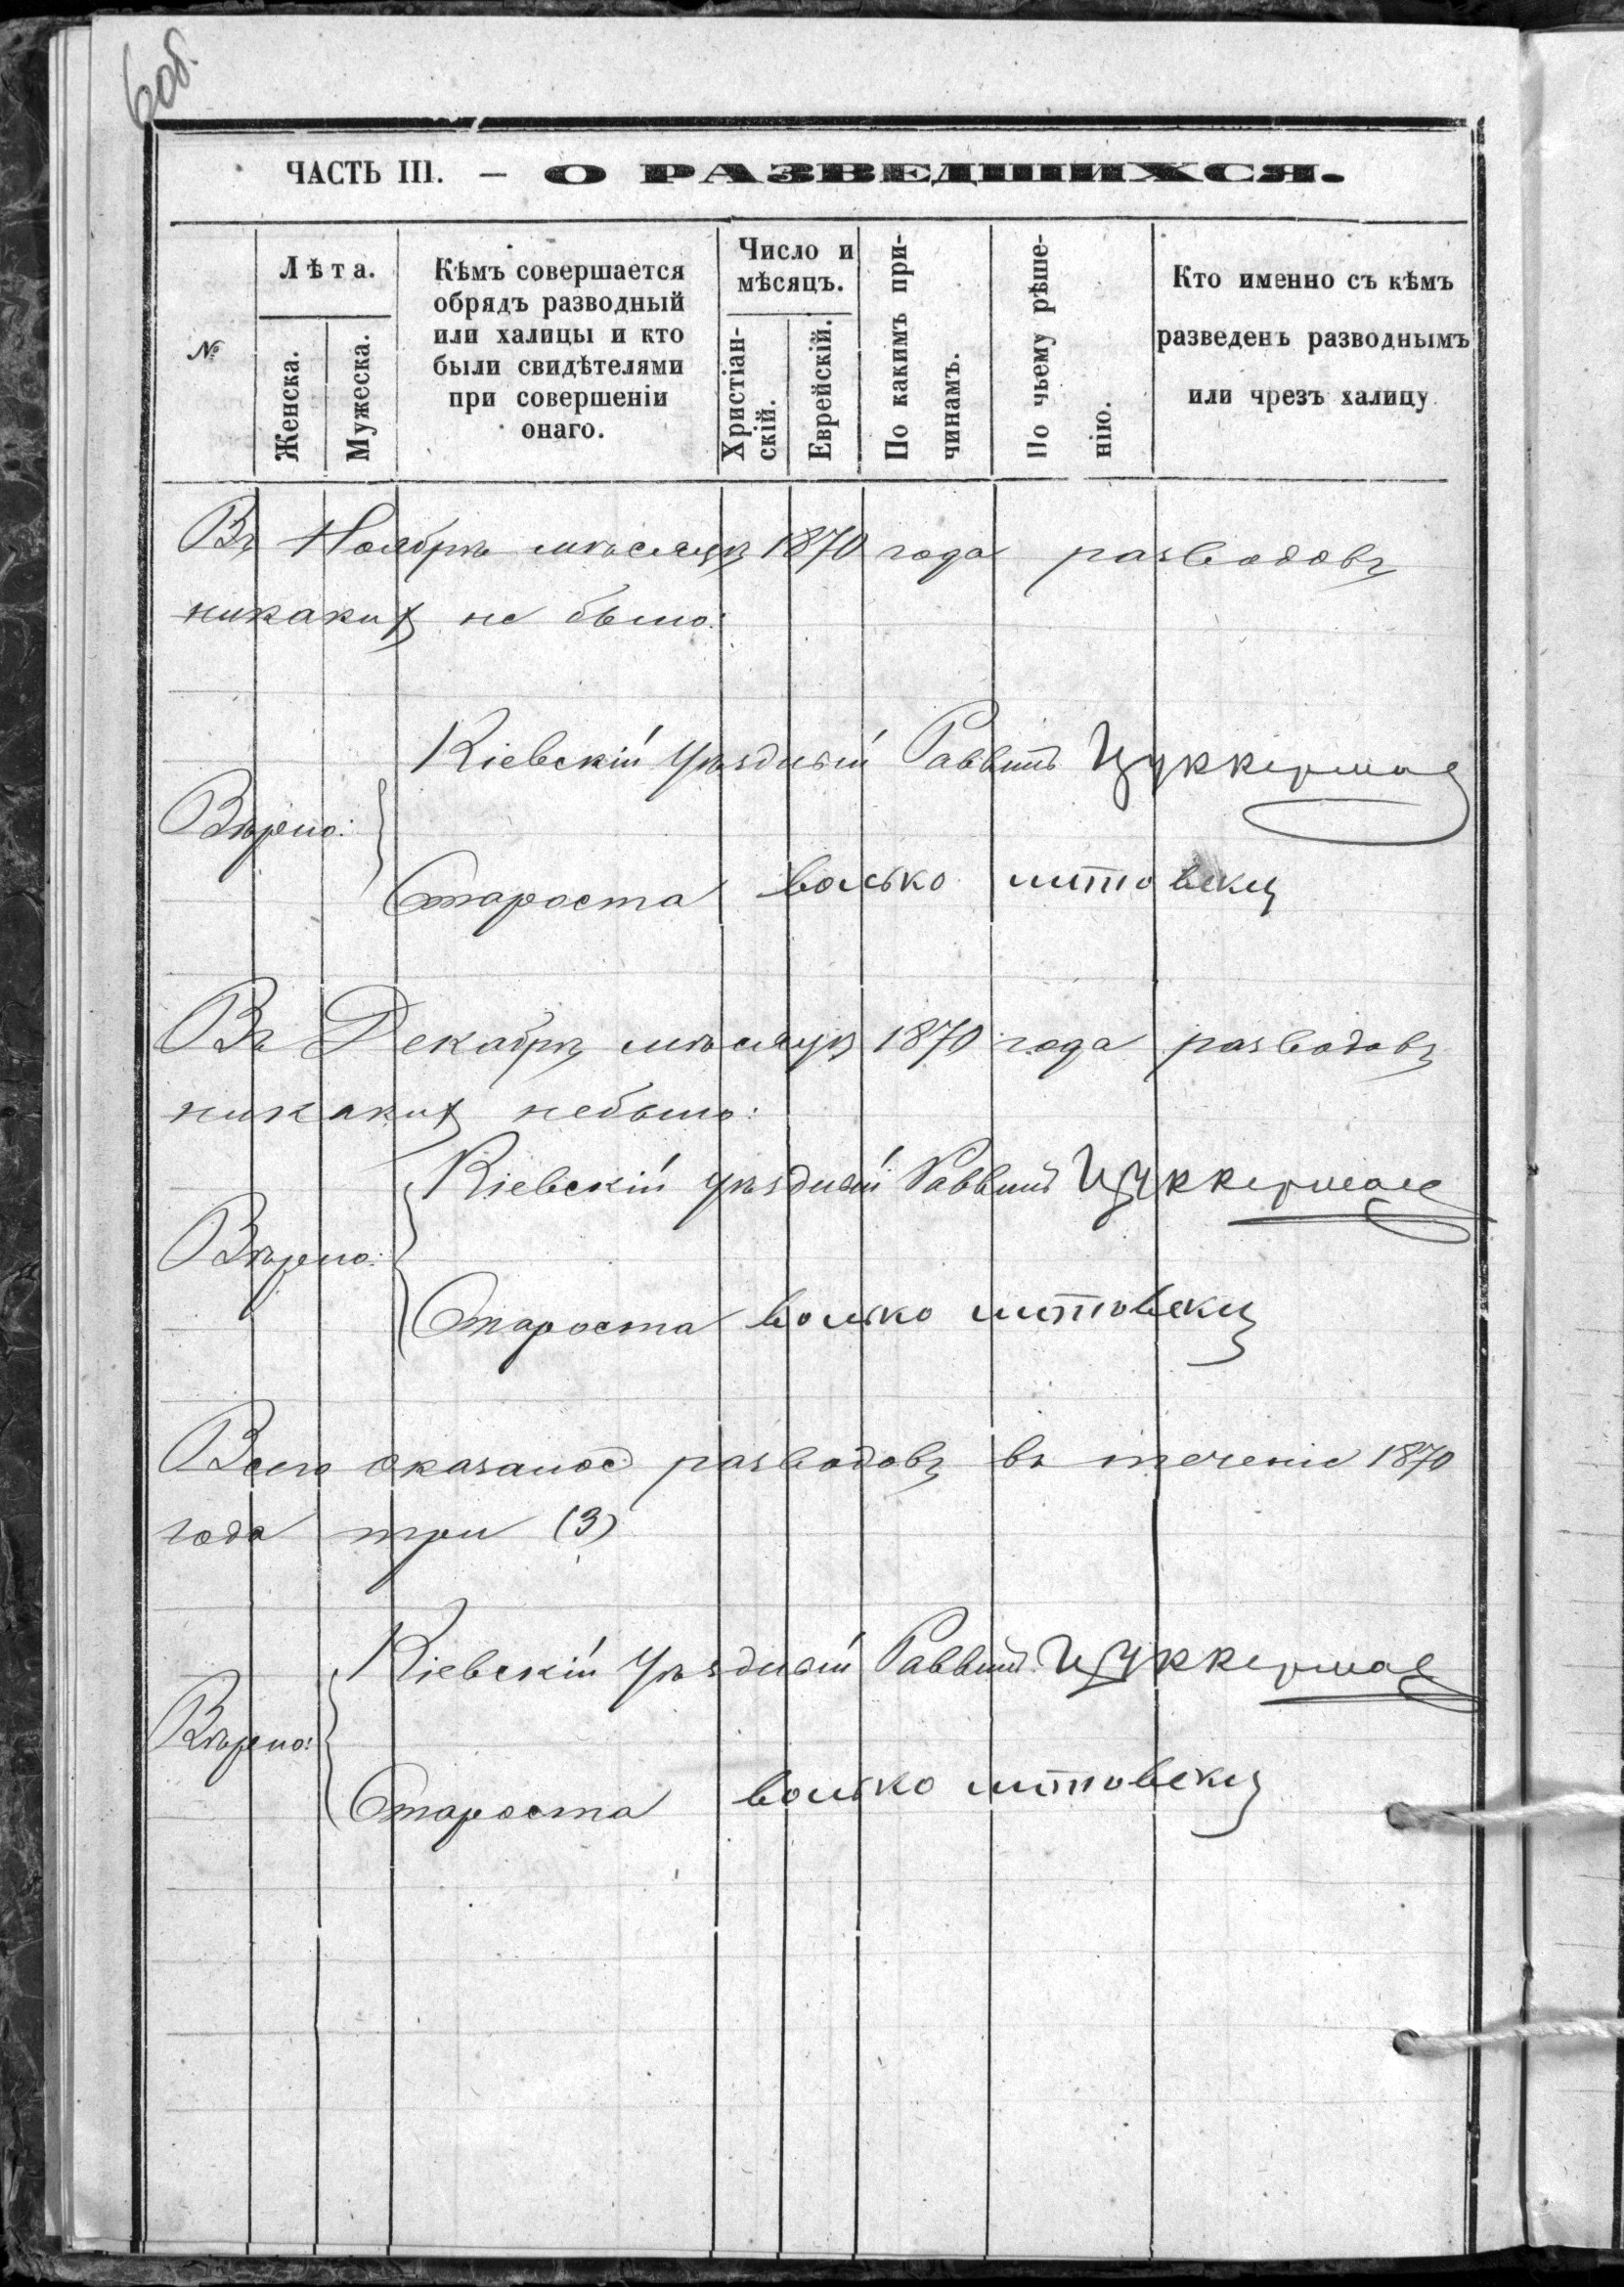 6 об.
ЧАСТЬ III. — О РАЗВЕДШИХСЯ.
№
Лѣта.
Женска.
Мужеска.
Кѣмъ совершается
обрядъ разводный
или халицы и кто
были свидѣтелями
при совершеніи
онаго.
Число и
мѣсяцъ.
Христіан-
скій.
Еврейскій.
По какимъ при-
чинамъ.
По чьему рѣше-
нію.
Кто именно съ кѣмъ
разведенъ разводнымъ
или чрезъ халицу
Въ Ноябрѣ мѣсяцѣ 1870 года разводовъ
никакихъ не было:
Кіевскій Уѣздный Раввинъ Цуккерман
Вѣрно:
Староста волько литовски
Въ Декабрѣ мѣсяцѣ 1870 года разводовъ
никакихъ небыло:
Кіевскій Уѣздный Раввинъ Цуккерман
Вѣрно:
Староста волько литовски
Всего оказалос разводовъ въ теченіе 1870
года три (3)
Кіевскій Уѣздный Раввинъ Цуккерман
Вѣрно:
Староста волько литовски